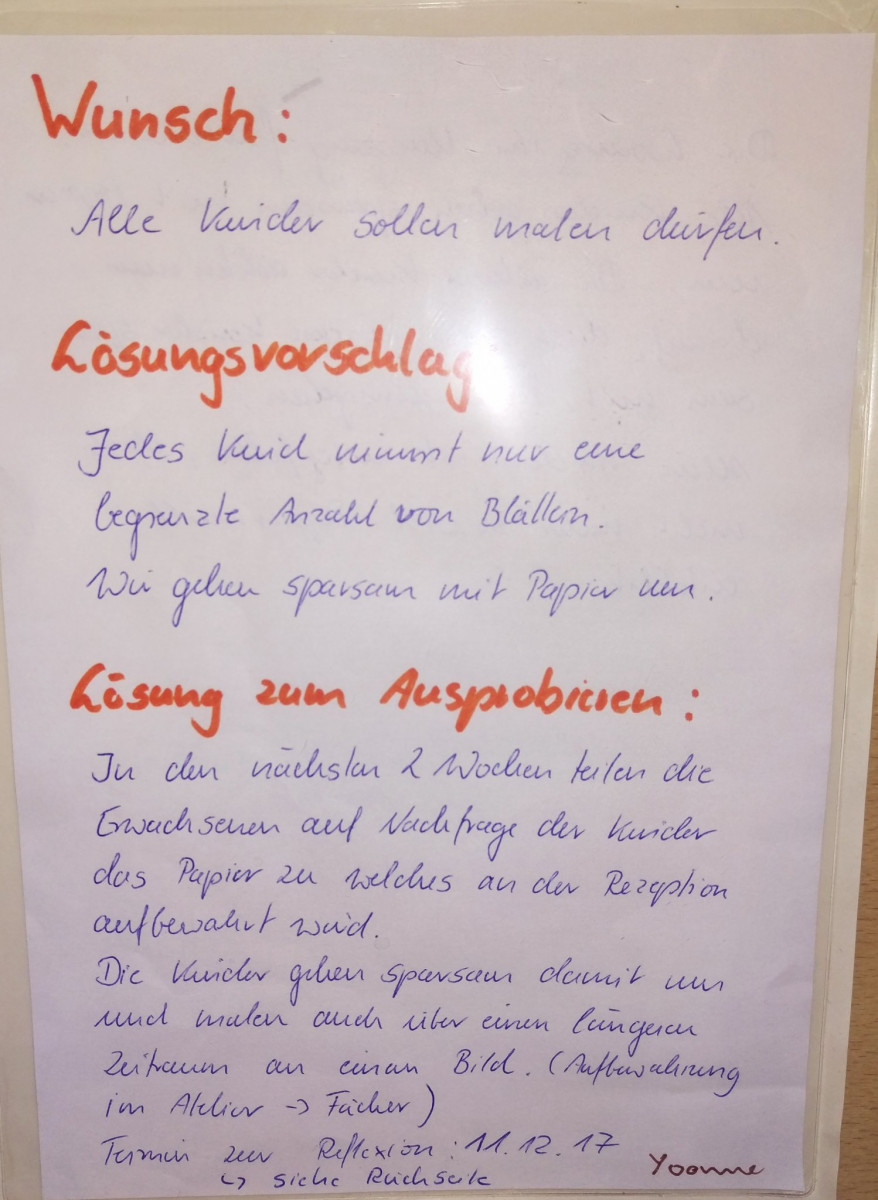 Wunsch:
Alle Kinder sollen malen dürfen.
Lösungsvorschlag
Jedes Kind nimmt nur eine
begrenzte Anzahl von Blättern.
Wir gehen sparsam mit Papier um.
Lösung zum Ausprobieren:
In den nächsten 2 Wochen teilen die
Erwachsenen auf Nachfrage der Kinder
das Papier zu welches an der Rezeption
aufbewahrt wird.
Die Kinder gehen sparsam damit um
und malen auch über einen längeren
Zeitraum an einem Bild. (Aufbewahrung
im Atelier -> Fächer)
Termin zur Reflexion: 11.12.17
↳ siehe Rückseite
Yvonne